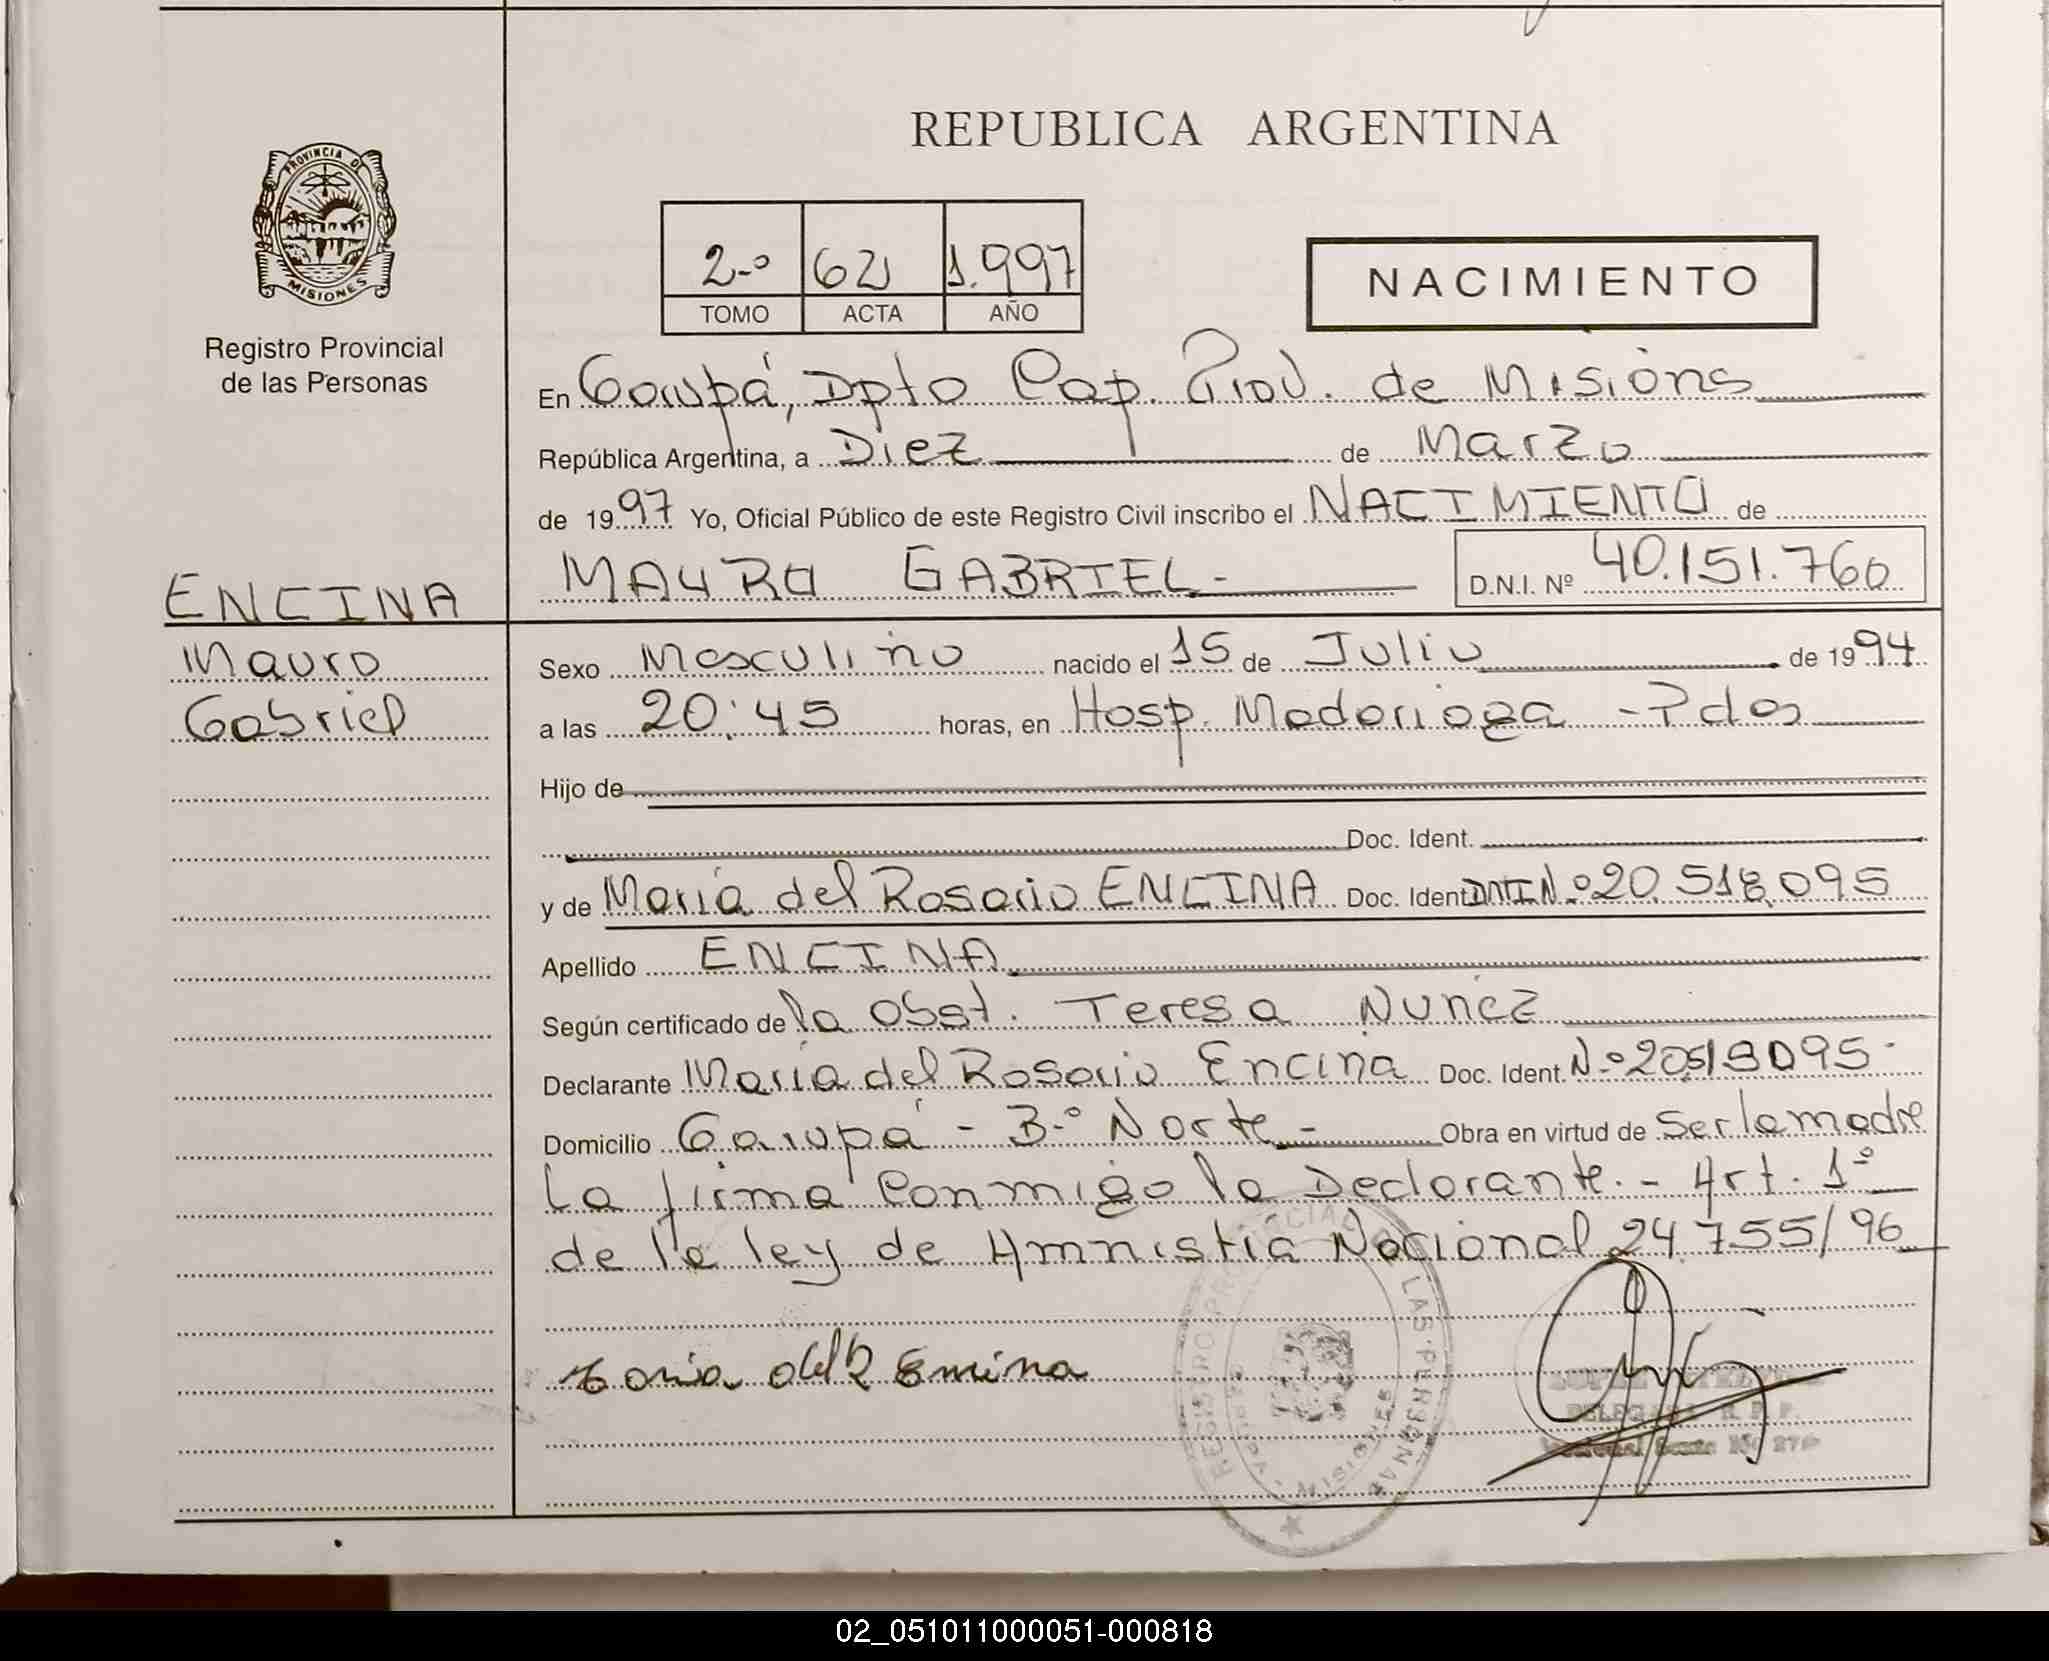 REPUBLICA ARGENTINA
PROVINCIA DE
MISIONES
Registro Provincial
de las Personas
2-º 62 1.997
TOMO ACTA AÑO
NACIMIENTO
En Garupá, Dpto Cap. Prov. de Misions
República Argentina, a Diez de Marzo
de 1997 Yo, Oficial Público de este Registro Civil inscribo el NACIMIENTO de
ENCINA
MAURO GABRIEL.- D.N.I. Nº 40.151.760
Mauro
Gabriel
Sexo Masculino nacido el 15 de Julio de 1994
a las 20:45 horas, en Hosp. Madariaga - Pdas
Hijo de
Doc. Ident.
y de María del Rosario ENCINA Doc. Ident DNI N.º 20.518.095
Apellido ENCINA
Según certificado de la Obst. Teresa Nuñez
Declarante María del Rosario Encina Doc. Ident. N.º 20518095-
Domicilio Garupá - B.º Norte - Obra en virtud de Ser la madre
La firma Conmigo la Declarante.- Art. 1º
de la ley de Amnistía Nacional 24.755/96
REGISTRO PROVINCIAL DE LAS PERSONAS
MISIONES
DELEGADA R. P. P.
02_051011000051-000818